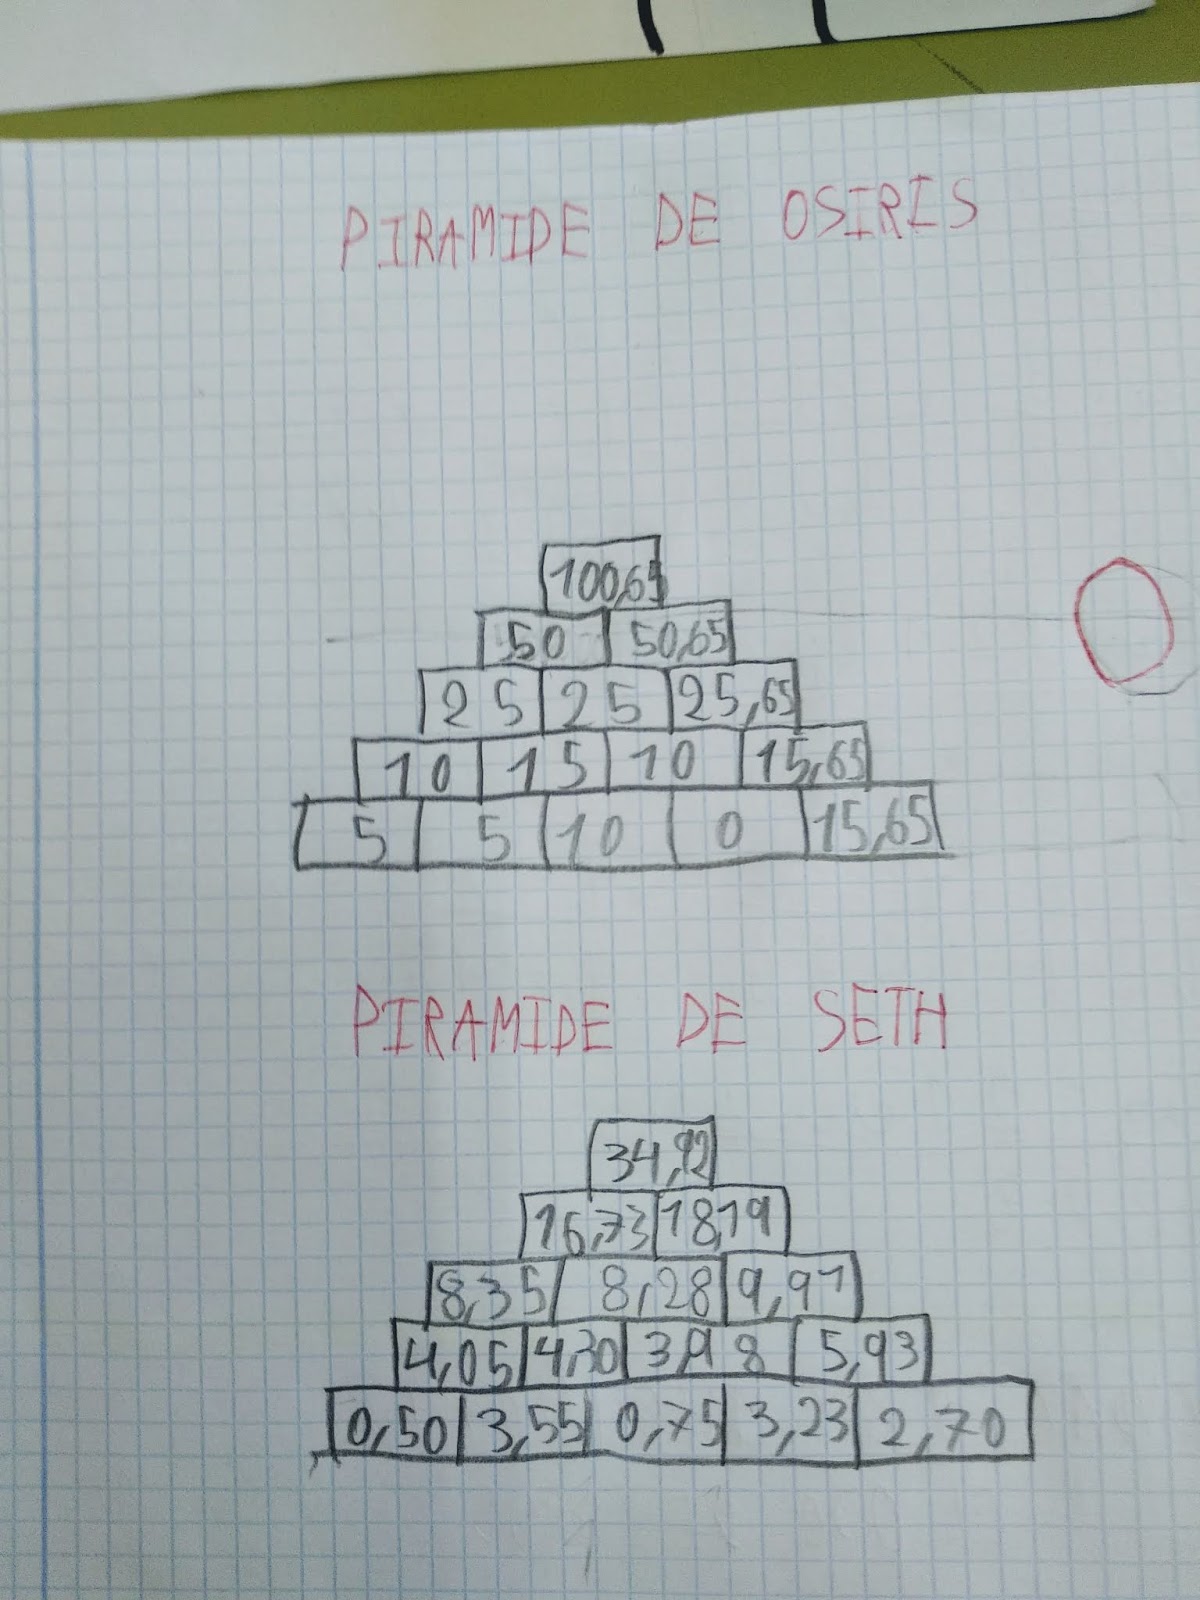 PIRAMIDE DE OSIRIS
100,65
50 50,65
25 25 25,65
10 15 10 15,65
5 5 10 0 15,65
PIRAMIDE DE SETH
34,92
16,73 18,19
8,35 8,28 9,91
4,05 4,30 3,98 5,93
0,50 3,55 0,75 3,23 2,70